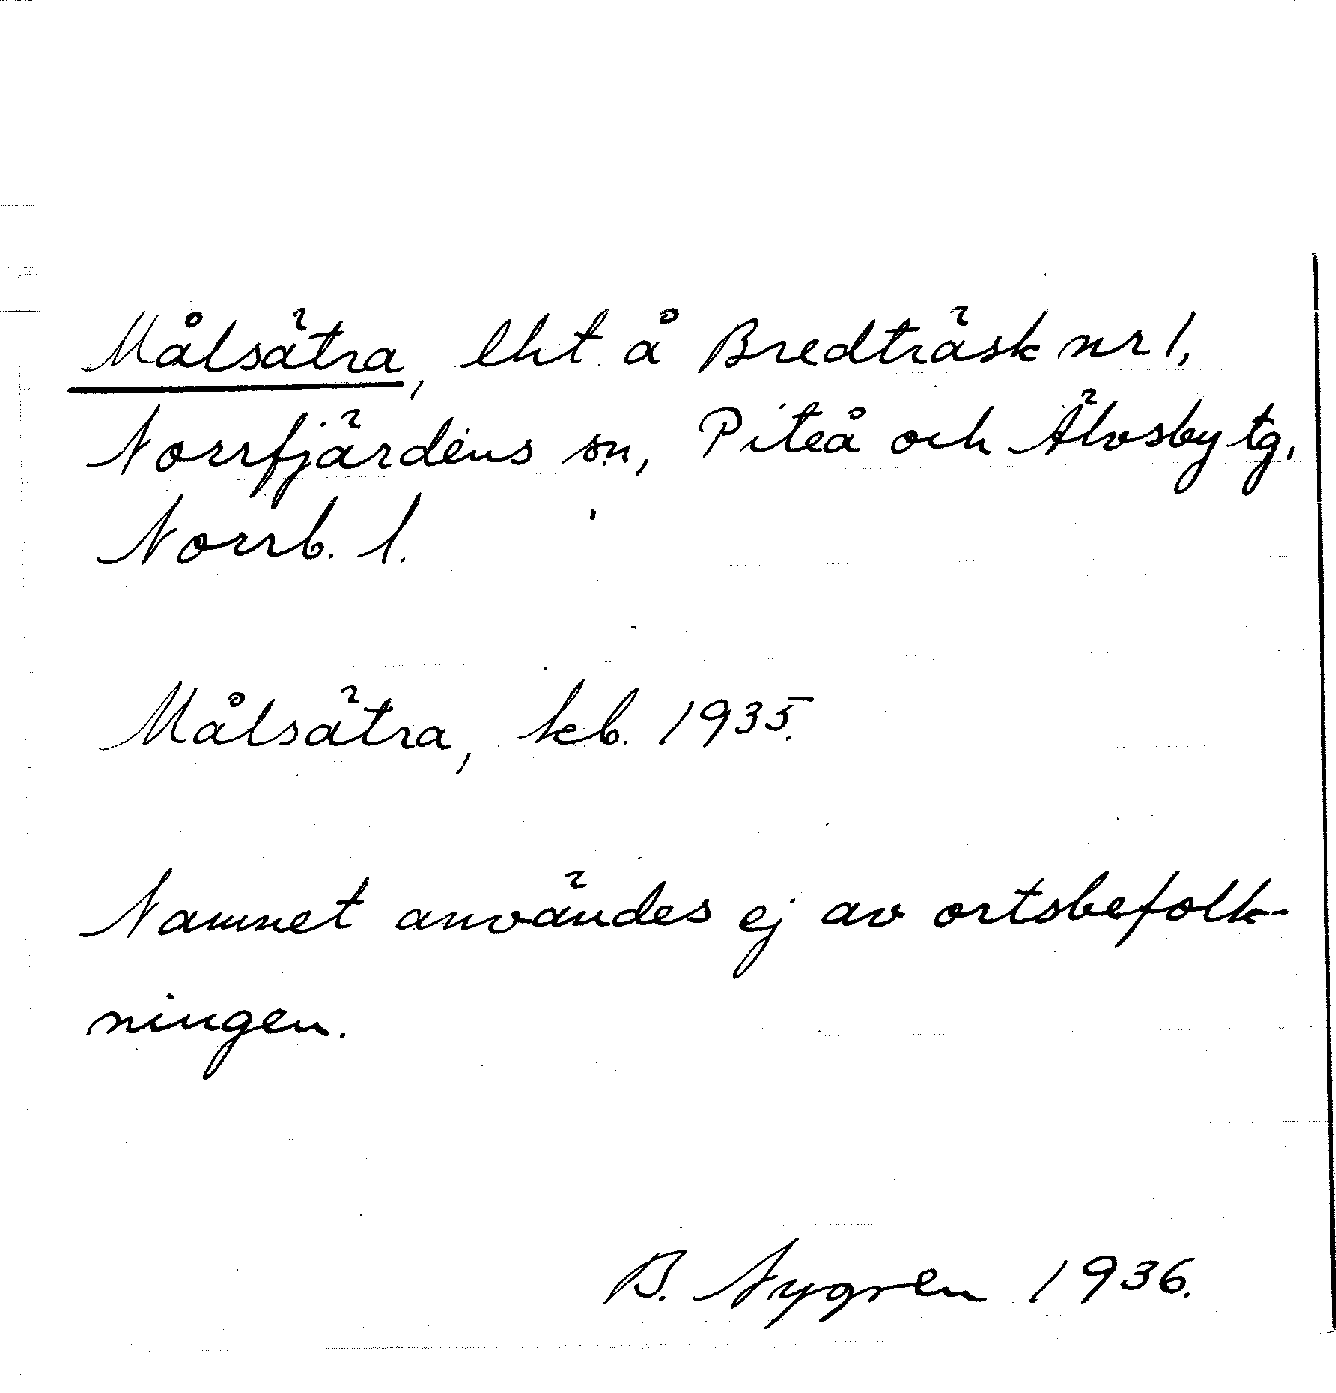 Målsätra, lht å Bredträsk nr 1,
Norrfjärdens sn, Piteå och Älvsby tg.
Norrb. l.
Målsätra, kb. 1935.
Namnet användes ej av ortsbefolk-
ningen.
B. Nygren 1936.